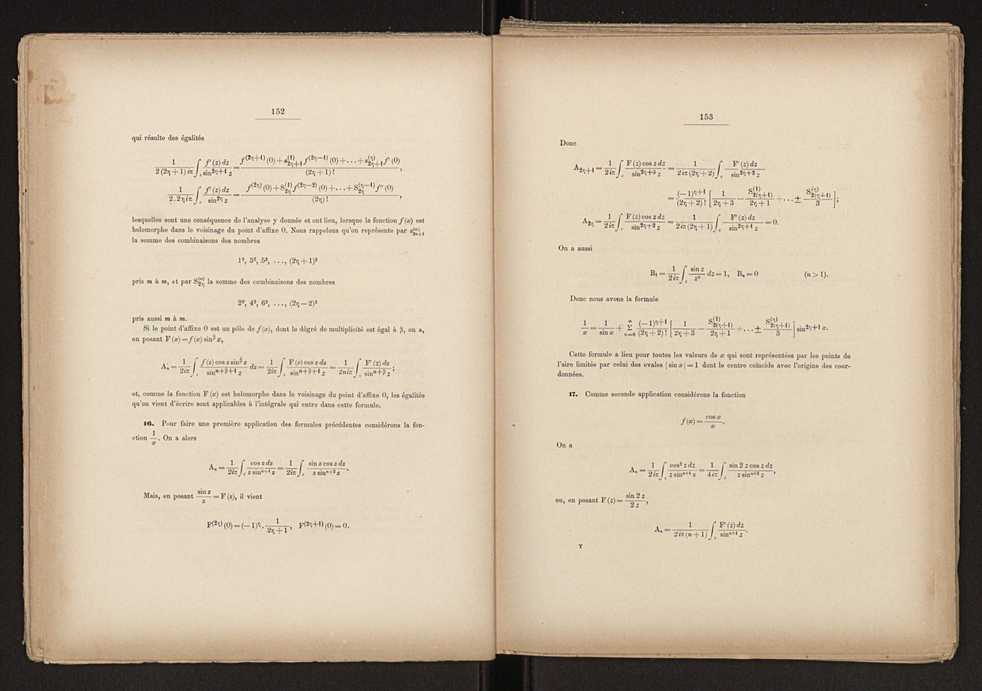 152
qui résulte des égalités
1/(2 (2η + 1) iπ) ∫_c f'(z) dz / sin^{2η+1} z = [f^{(2η+1)}(0) + s^{(1)}_{2η+1} f^{(2η−1)}(0) + . . . + s^{(η)}_{2η+1} f'(0)] / (2η + 1)! ,
1/(2.2η iπ) ∫_c f'(z) dz / sin^{2η} z = [f^{(2η)}(0) + S^{(1)}_{2η} f^{(2η−2)}(0) + . . . + S^{(η−1)}_{2η} f''(0)] / (2η)! ,
lesquelles sont une conséquence de l'analyse y donnée et ont lieu, lorsque la fonction f(x) est
holomorphe dans le voisinage du point d'affixe 0. Nous rappelons qu'on représente par s^{(m)}_{2η+1}
la somme des combinaisons des nombres
1², 3², 5², . . ., (2η + 1)²
pris m à m, et par S^{(m)}_{2η} la somme des combinaisons des nombres
2², 4², 6², . . ., (2η − 2)²
pris aussi m à m.
Si le point d'affixe 0 est un pôle de f(x), dont le dégré de multiplicité est égal à β, on a,
en posant F(x) = f(x) sin^β x,
A_n = 1/(2iπ) ∫_c f(z) cos z sin^β z / sin^{n+β+1} z dz = 1/(2iπ) ∫_c F(z) cos z dz / sin^{n+β+1} z = 1/(2niπ) ∫_c F'(z) dz / sin^{n+β} z ;
et, comme la fonction F(x) est holomorphe dans le voisinage du point d'affixe 0, les égalités
qu'on vient d'écrire sont applicables à l'intégrale qui entre dans cette formule.
16. Pour faire une première application des formules précédentes considérons la fon-
ction 1/x. On a alors
A_n = 1/(2iπ) ∫_c cos z dz / z sin^{n+1} z = 1/(2iπ) ∫_c sin z cos z dz / z sin^{n+2} z .
Mais, en posant sin z / z = F(z), il vient
F^{(2η)}(0) = (−1)^η . 1/(2η + 1), F^{(2η+1)}(0) = 0.
153
Donc
A_{2η+1} = 1/(2iπ) ∫_c F(z) cos z dz / sin^{2η+3} z = 1/(2iπ(2η + 2)) ∫_c F'(z) dz / sin^{2η+2} z
= (−1)^{η+1}/(2η + 2)! [1/(2η + 3) − S^{(1)}_{2(η+1)}/(2η + 1) + . . . ± S^{(η)}_{2(η+1)}/3] ;
A_{2η} = 1/(2iπ) ∫_c F(z) cos z dz / sin^{2η+2} z = 1/(2iπ(2η + 1)) ∫_c F'(z) dz / sin^{2η+1} z = 0.
On a aussi
B_1 = 1/(2iπ) ∫_c sin z / z² dz = 1, B_n = 0 (n > 1).
Donc nous avons la formule
1/x = 1/sin x + Σ_{η=0}^{∞} (−1)^{η+1}/(2η + 2)! [1/(2η + 3) − S^{(1)}_{2(η+1)}/(2η + 1) + . . . ± S^{(η)}_{2(η+1)}/3] sin^{2η+1} x.
Cette formule a lieu pour toutes les valeurs de x qui sont représentées par les points de
l'aire limitée par celui des ovales | sin x | = 1 dont le centre coïncide avec l'origine des coor-
données.
17. Comme seconde application considérons la fonction
f(x) = cos x / x .
On a
A_n = 1/(2iπ) ∫_c cos² z dz / z sin^{n+1} z = 1/(4iπ) ∫_c sin 2z cos z dz / z sin^{n+2} z ,
ou, en posant F(z) = sin 2z / 2z ,
A_n = 1/(2iπ(n + 1)) ∫_c F'(z) dz / sin^{n+1} z .
T